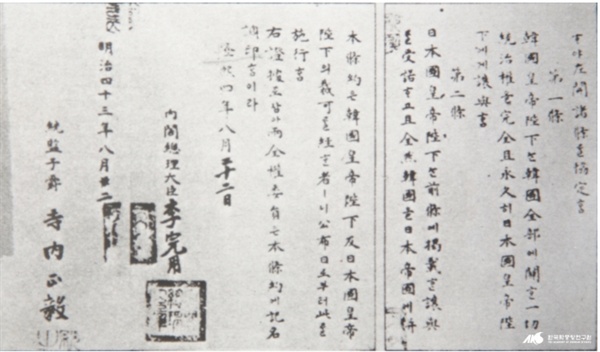 ᄒᆞ야左開諸條를協定홈
第一條
韓國皇帝陛下는韓國全部에關ᄒᆞᆫ一切
統治權을完全且永久히日本國皇帝陛
下에게讓與홈
第二條
日本國皇帝陛下는前條에揭載ᄒᆞᆫ讓與
를受諾ᄒᆞ고且全然韓國을日本帝國에併
本條約은韓國皇帝陛下及日本國皇帝
陛下의裁可를經ᄒᆞᆫ者ㅣ니公布日로부터此를
施行홈
右證據로삼아兩全權委員은本條約에記名
調印홈이라
隆熙四年八月二十二日
內閣總理大臣 李完用
明治四十三年八月廿二
統監子爵 寺內正毅
한국학중앙연구원